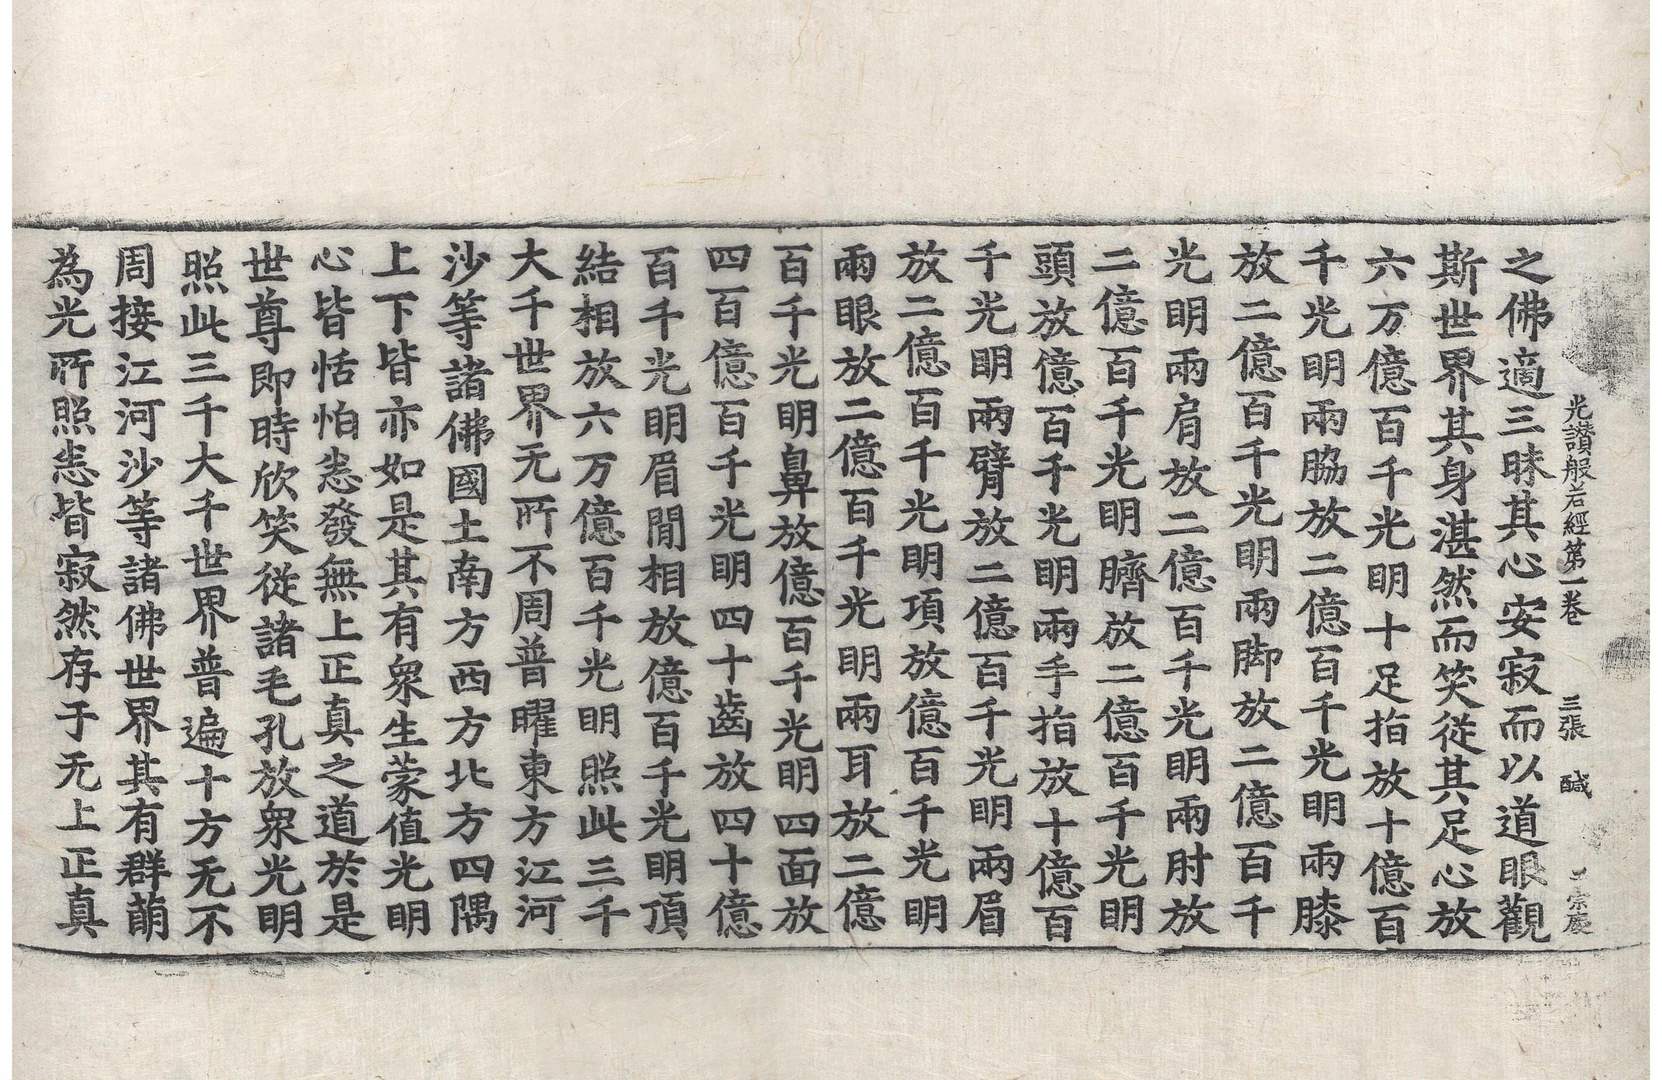 光讚般若經第一卷 三張 醎 宗慶
之佛適三昧其心安寂而以道眼觀
斯世界其身湛然而笑從其足心放
六万億百千光明十足指放十億百
千光明兩脇放二億百千光明兩膝
放二億百千光明兩脚放二億百千
光明兩肩放二億百千光明兩肘放
二億百千光明臍放二億百千光明
頭放億百千光明兩手指放十億百
千光明兩臂放二億百千光明兩眉
放二億百千光明項放億百千光明
兩眼放二億百千光明兩耳放二億
百千光明鼻放億百千光明四面放
四百億百千光明四十齒放四十億
百千光明眉閒相放億百千光明頂
結相放六万億百千光明照此三千
大千世界无所不周普曜東方江河
沙等諸佛國土南方西方北方四隅
上下皆亦如是其有衆生蒙值光明
心皆恬怕悉發無上正真之道於是
世尊即時欣笑從諸毛孔放衆光明
照此三千大千世界普遍十方无不
周接江河沙等諸佛世界其有群萌
為光所照悉皆寂然存于无上正真